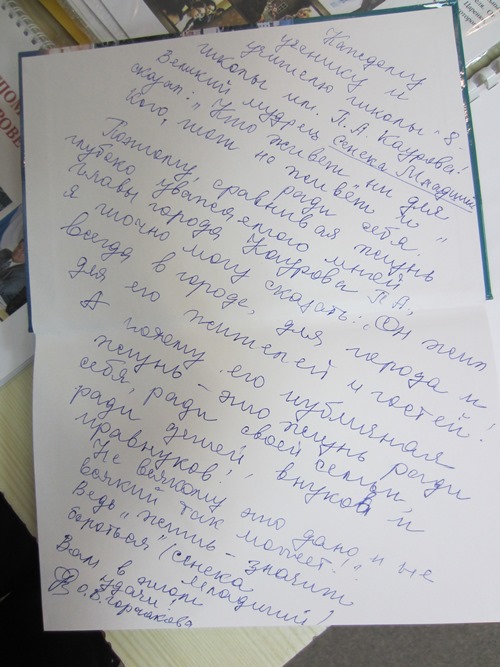 Каждому
ученику и
учителю школы
школы им. П.А. Каурова - 8.
Великий мудрец Сенека Младший
сказал: "Кто живёт ни для
кого, тот не живёт и
ради себя."
Поэтому, сравнивая жизнь
глубоко уважаемого мной
главы города Каурова П.А,
я точно могу сказать: "Он жил
всегда в городе, для города и
для его жителей и гостей!
А потому его публичная
жизнь - это жизнь ради
себя, ради своей семьи,
ради детей, внуков и
правнуков!
Не всякому это дано и не
всякий так может!
Ведь "жить - значит
бороться" (Сенека
Младший)
Вам в этом
удачи!
О.В. Горчакова